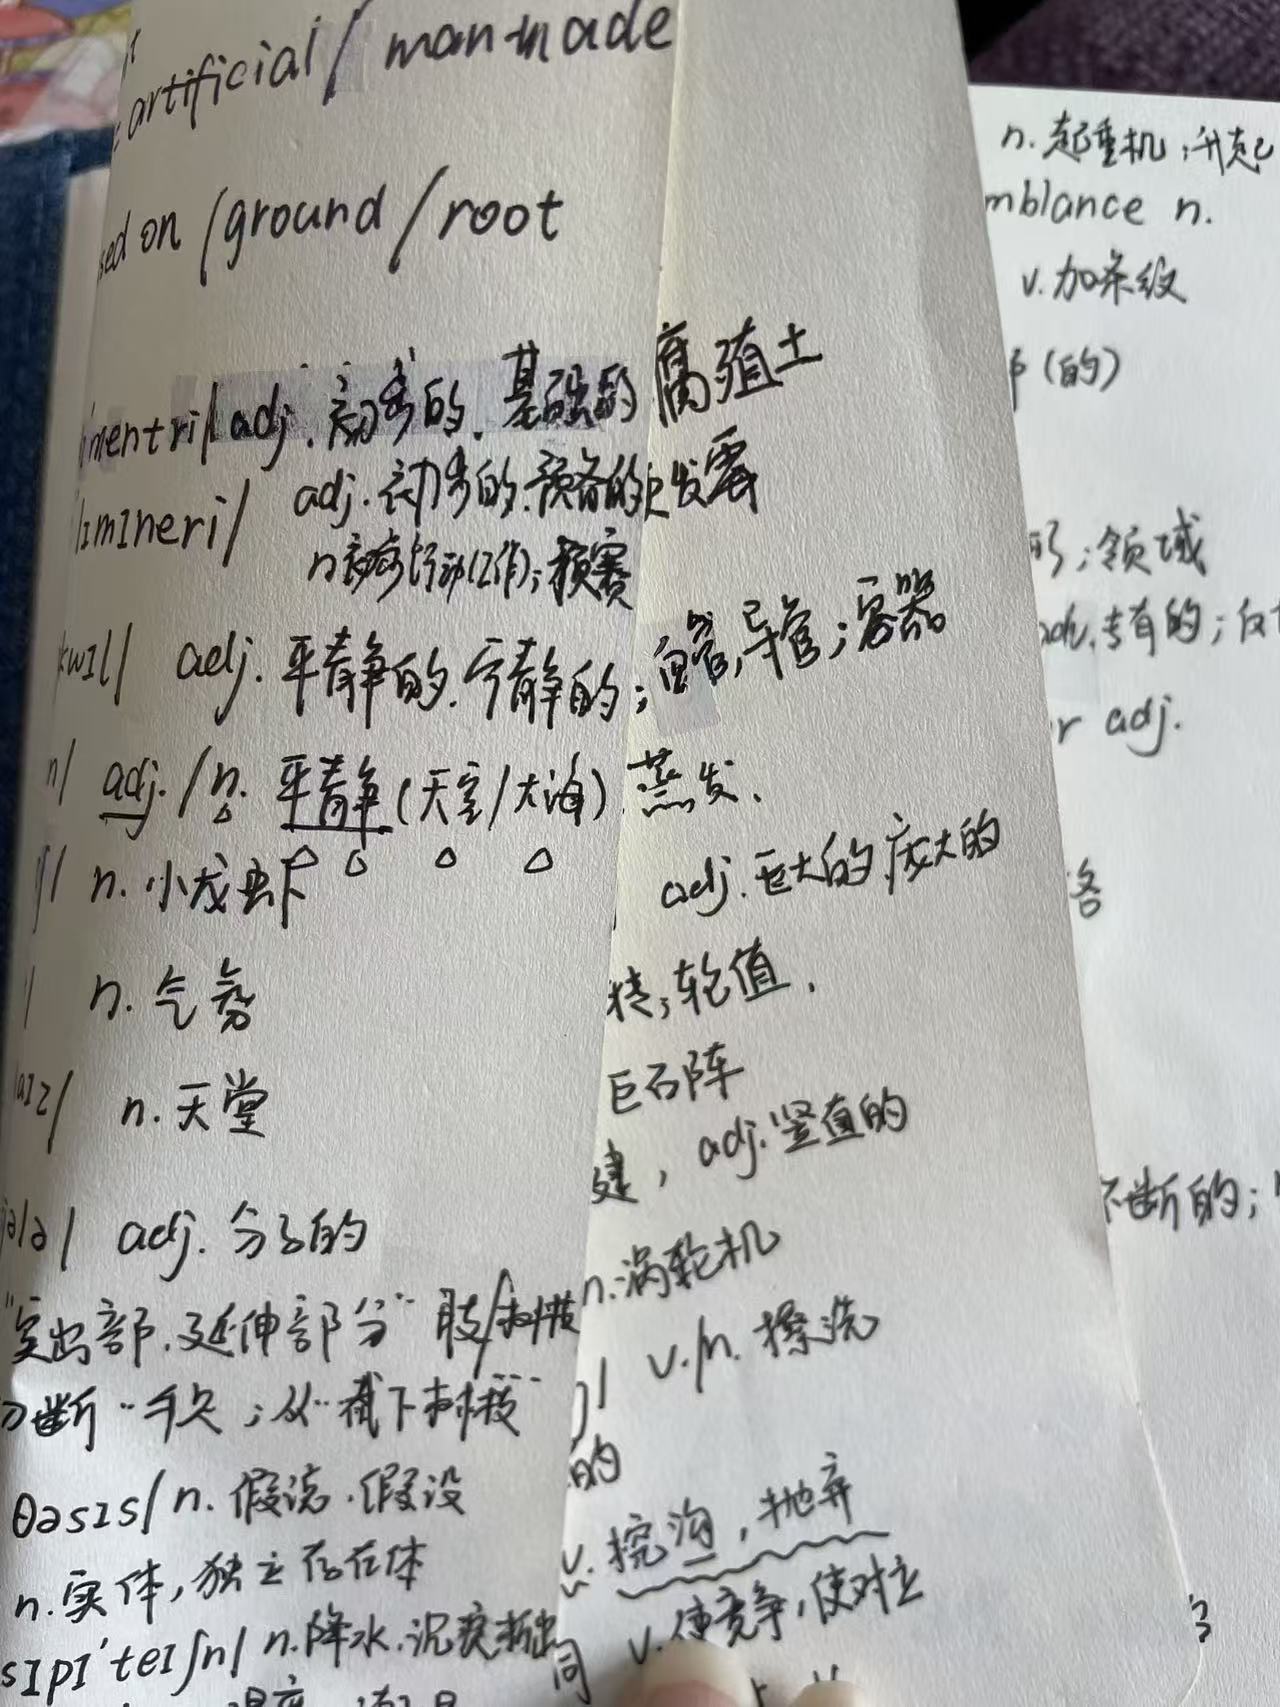 artificial / man-made
sed on / ground / root
mentri/ adj. 初步的. 基础的
limineri/ adj. 初步的. 预备的
n 初步行动(工作); 预赛
kwIl/ adj. 平静的. 宁静的;
n/ adj. / n. 平静 (天空/大海)
n. 小龙虾
n. 气氛
aIz/ n. 天堂
jələ/ adj. 分子的
"突出部. 延伸部分" 肢/树枝
断
θəsIs/ n. 假说. 假设
n. 实体, 独立存在体
sIpI'teIʃn/ n. 降水. 沉淀
腐殖土
发霉
导管; 容器
蒸发.
adj. 巨大的 庞大的
转; 轮值.
巨石阵
建, adj. 竖直的
n. 涡轮机
v./n. 擦洗
的
v. 挖沟, 抛弃
v. 使竞争, 使对立
n. 起重机; 升起
mblance n.
v. 加条纹
(的)
; 领域
专有的;
r adj.
不断的;